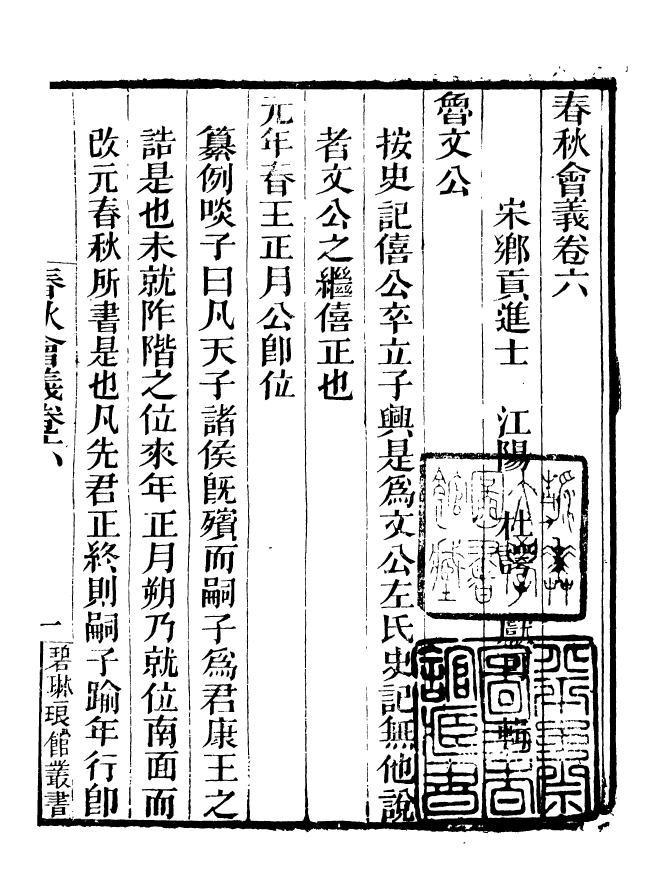 春秋會義卷六
宋鄉貢進士　江陽　杜諤　獻可　輯
魯文公
按史記僖公卒立子興是爲文公左氏史記無他說
者文公之繼僖正也
元年春王正月公卽位
纂例啖子曰凡天子諸侯旣殯而嗣子爲君康王之
誥是也未就阼階之位來年正月朔乃就位南面而
改元春秋所書是也凡先君正終則嗣子踰年行卽
春秋會義卷六
一
碧琳琅館叢書